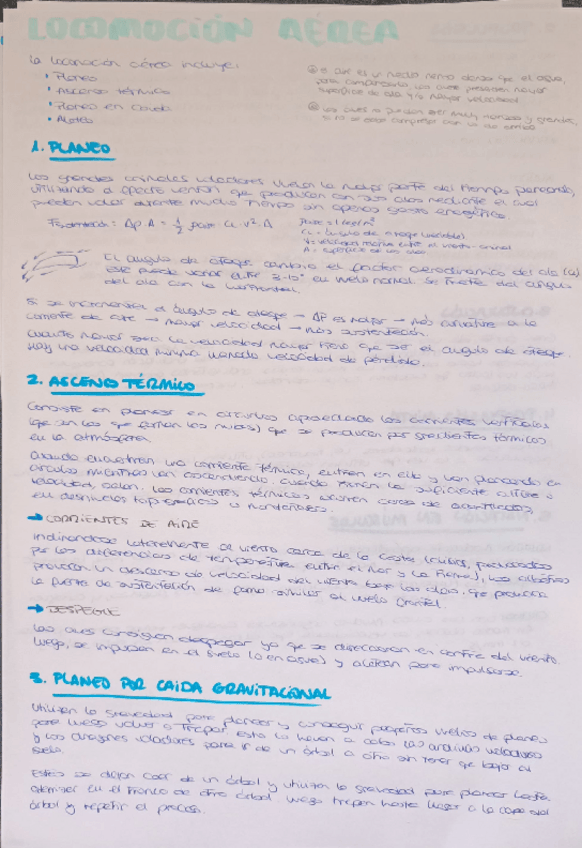 LOCOMOCIÓN AÉREA
La locomoción aérea incluye:
• Planeo
• Ascenso térmico
• Planeo en caída
• Aleteo
el aire es un medio menos denso que el agua,
para compensarlo, las aves presentan mayor
superficie de ala y/o mayor velocidad
las aves no pueden ser muy y grandes,
1. PLANEO
Los grandes animales voladores vuelan la mayor parte del tiempo planeando,
utilizando el efecto venturi que producen con sus alas mediante el cual
pueden volar durante mucho tiempo sin apenas gasto energético.
Fsustentación: Δp A = 1/2 ρaire CL · v² · A
ρaire = 1 kg/m³
CL = ángulo de ataque (variable)
V = velocidad relativa entre el viento - animal
A = superficie de las alas
El ángulo de ataque cambia el factor aerodinámico del ala (CL)
este puede variar entre 3-10° en vuelo normal. Se trata del ángulo
del ala con la horizontal.
Si se incrementa el ángulo de ataque → ΔP es mayor → más curvatura a la
corriente de aire → mayor velocidad → más sustentación.
Cuanto menor sea la velocidad mayor tiene que ser el ángulo de ataque.
Hay una velocidad mínima llamada velocidad de pérdida.
2. ASCENSO TÉRMICO
Consiste en planear en círculos aprovechando las corrientes verticales
(que son las que forman las nubes) que se producen por gradientes térmicos
en la atmósfera.
Cuando encuentran una corriente térmica, entran en ella y van planeando en
círculos mientras van ascendiendo. Cuando tienen la suficiente altura o
velocidad, salen. Las corrientes térmicas existen cerca de acantilados
en desniveles topográficos o montañosos.
→ CORRIENTES DE AIRE
Inclinándose lateralmente al viento cerca de la costa (
por las diferencias de temperatura entre el mar y la tierra), los
provocan un descenso de velocidad del viento bajo las alas, que produce
la fuerza de sustentación de forma similar al vuelo
→ DESPEGUE
Las aves consiguen despegar ya que se direccionan en contra del viento.
Luego, se impulsan en el suelo (o en agua) y aletean para impulsarse.
3. PLANEO POR CAIDA GRAVITACIONAL
Utilizan la gravedad para planear y conseguir pequeños vuelos de planeo
para luego volver a trepar. Esto lo llevan a cabo las ardillas voladoras
y los dragones voladores para ir de un árbol a otro sin tener que bajar al
suelo.
Estos se dejan caer de un árbol y utilizan la gravedad para planear hasta
aterrizar en el tronco de otro árbol. Luego trepan hasta llegar a la copa del
árbol y repetir el proceso.